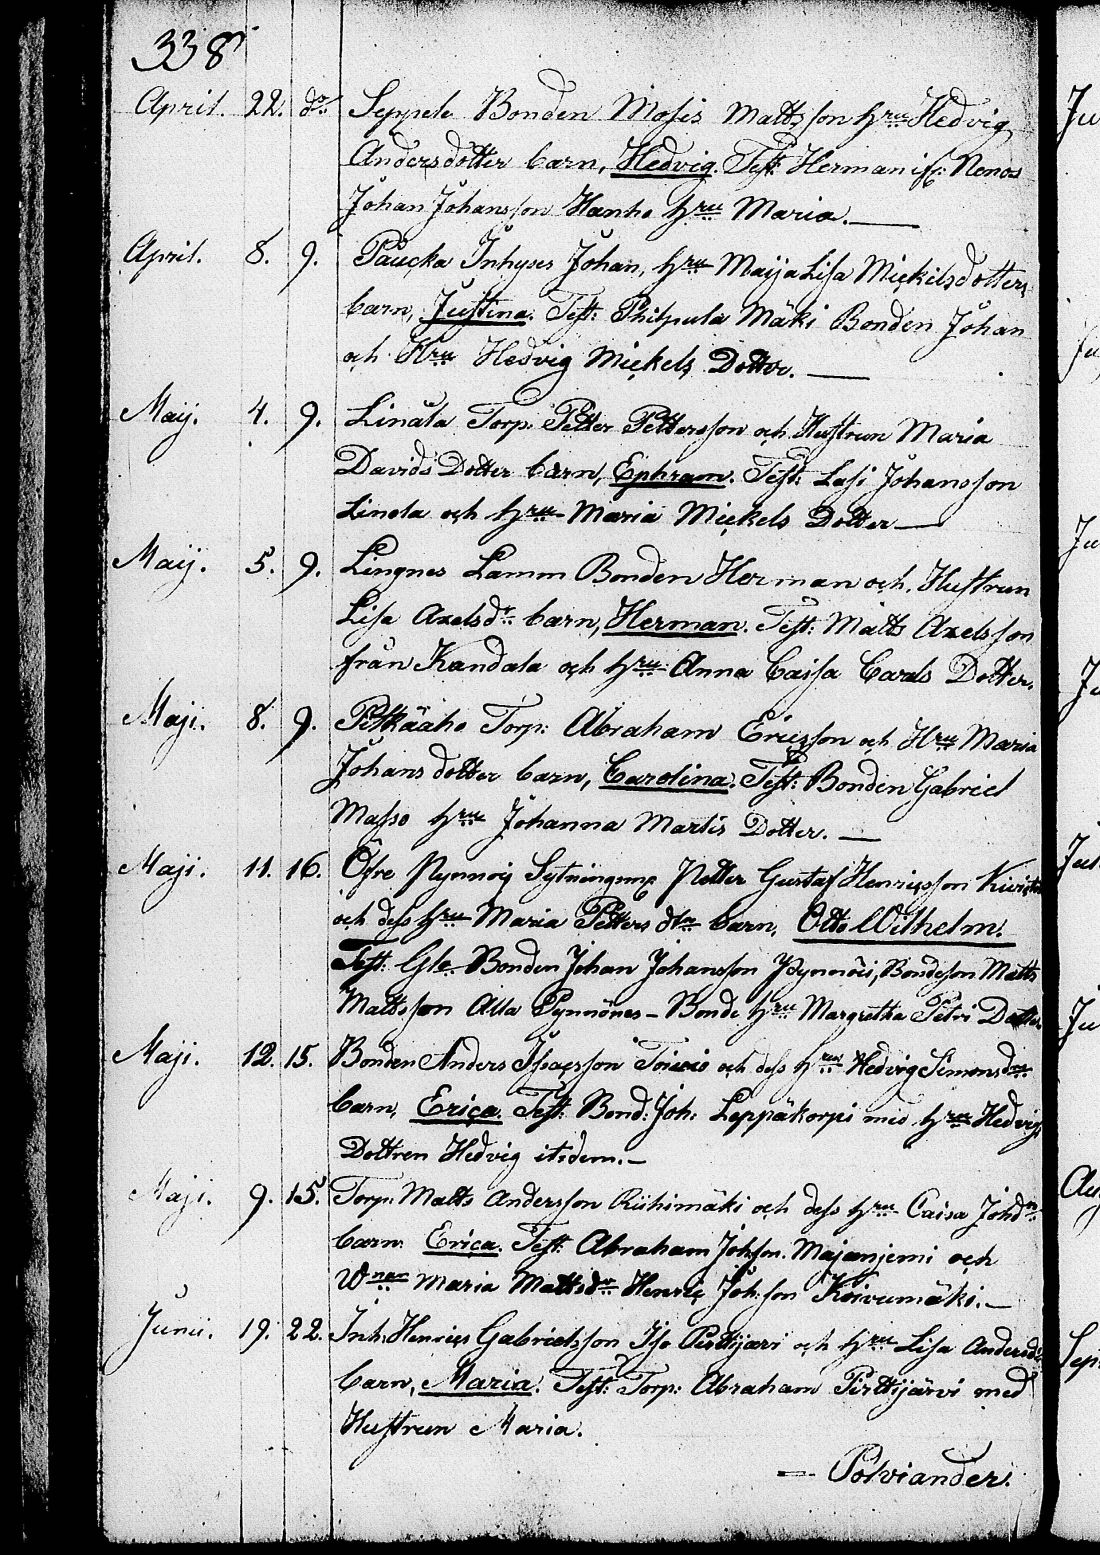 338
April. 22. do. Seppele Bonden Mosis Mattsson hru Hedvig
Andersdotter barn, Hedvig. Test: Herman Nonos
Johan Johansson Hanho hru Maria.
April. 8. 9. Paucka Inhyses Johan, hru Maija Lisa Mickelsdotters
barn, Justina. Test: Philpula Mäki Bonden Johan
och Hru Hedvig Mickels Dotter.
Maij. 4. 9. Linala Torp. Petter Pettersson och Hustrun Maria
Davids Dotter barn, Ephram. Test: Lasi Johansson
Linola och hru Maria Mickels Dotter
Maij. 5. 9. Lingnes Lamm Bonden Herman och Hustrun
Lisa Axelsdr barn, Herman. Test: Matts Axelsson
från Kandala och hru Anna Caisa Carls Dotter.
Maji. 8. 9. Pitkäaho Torp: Abraham Ericsson och Hru Maria
Johans dotter barn, Carolina. Test: Bonden Gabriel
Masso hru Johanna Martis Dotter.
Maji. 11. 16. Öfre Pynnöig Sytningsm Petter Gustaf Henricsson
och dess hru Maria Petters dtr barn, Otto Wilhelm.
Test: Gle. Bonden Johan Johansson Pynnöis, Bondeson Matts
Mattsson Alla Pynnönes - Bonde hru Margretha Petri Dotter
Maji. 12. 15. Bonden Anders Isacsson Toivio och dess hru Hedvig Simonsdr
barn, Erica. Test: Bond: Joh: Leppäkorpi med hru Hedvig
Dottren Hedvig itsdem.
Maji. 9. 15. Torp: Matts Andersson Riihimäki och dess hru Caisa Johdr
barn Erica. Test: Abraham Johsson Majanjemi och
Maria Mattsdr Henric Johsson Koivumäki.
Junii. 19. 22. Inh: Henrics Gabrielsson Iso Pirttijärvi och hru Lisa Andersdr
barn, Maria. Test: Torp: Abraham Pirttijärvi med
Hustrun Maria.
Polviander.